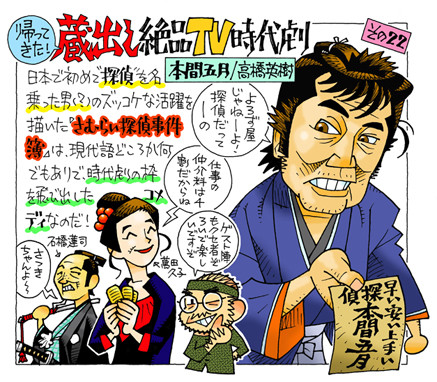 帰ってきた!
蔵出し絶品TV時代劇
その22
本間五月/高橋英樹
日本で初めて探偵を名
乗った男、そのズッコケな活躍を
描いた『さむらい探偵事件
簿』は、現代語どころか何
でもありで、時代劇の枠
を飛び出した
コメ
ディなのだ!
よろず屋
じゃねーよ!
探偵だって
ーの
仕事の
仲介料は4
割だからね
萬田
久子
ゲスト陣
もクセ者ぞ
ろいで楽し
いですぞ
石橋蓮司
さつき
ちゃんよ〜
早い安い上手い
探偵
本間五月